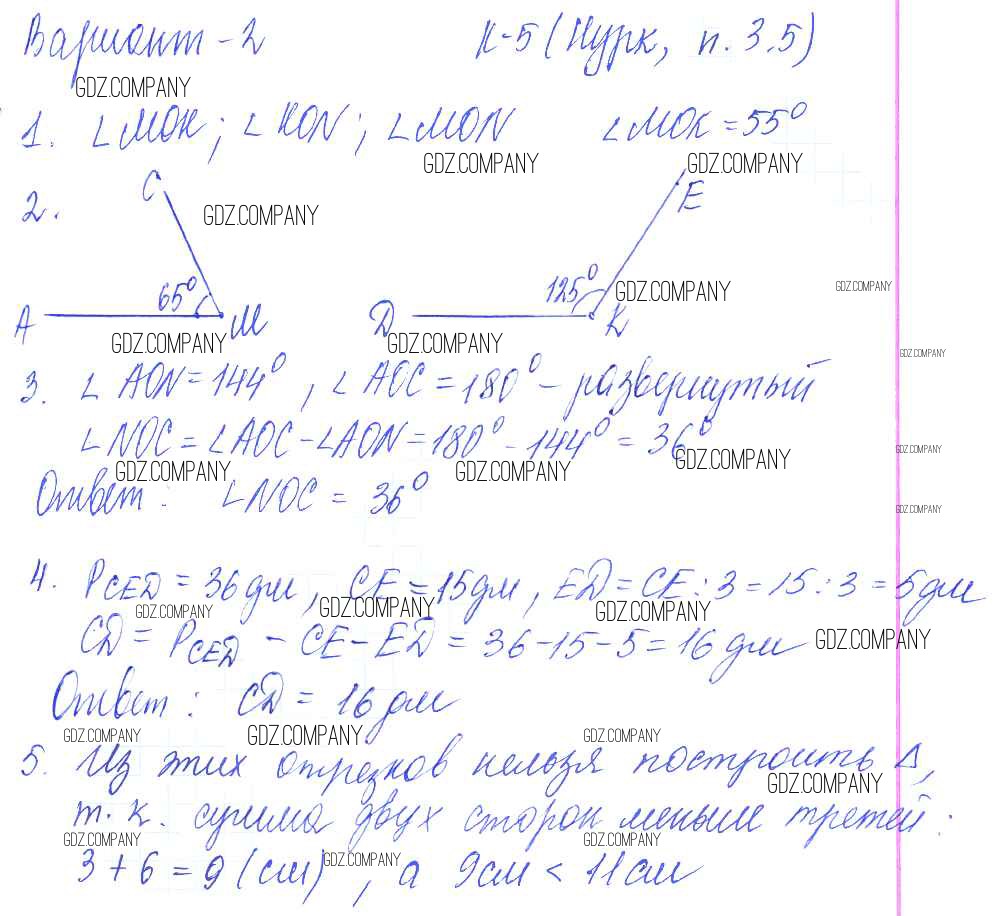 Вариант-2 К-5 (Нурк, п. 3.5)
GDZ.COMPANY
1. ∠MOK; ∠KON; ∠MON ∠MOK = 55°
GDZ.COMPANY GDZ.COMPANY
2. C E
GDZ.COMPANY
65° 125° GDZ.COMPANY GDZ.COMPANY
A M D K
GDZ.COMPANY GDZ.COMPANY GDZ.COMPANY
3. ∠AON = 144°, ∠AOC = 180° - развернутый
∠NOC = ∠AOC - ∠AON = 180° - 144° = 36°
GDZ.COMPANY GDZ.COMPANY GDZ.COMPANY GDZ.COMPANY
Ответ: ∠NOC = 36°
GDZ.COMPANY
4. P CED = 36 дм, CE = 15 дм, ED = CE : 3 = 15 : 3 = 5 дм
GDZ.COMPANY GDZ.COMPANY GDZ.COMPANY
CD = P CED - CE - ED = 36 - 15 - 5 = 16 дм GDZ.COMPANY
Ответ: CD = 16 дм
GDZ.COMPANY GDZ.COMPANY GDZ.COMPANY
5. Из этих отрезков нельзя построить Δ,
GDZ.COMPANY
т.к. сумма двух сторон меньше третей:
GDZ.COMPANY GDZ.COMPANY
3 + 6 = 9 (см), а 9 см < 11 см
GDZ.COMPANY